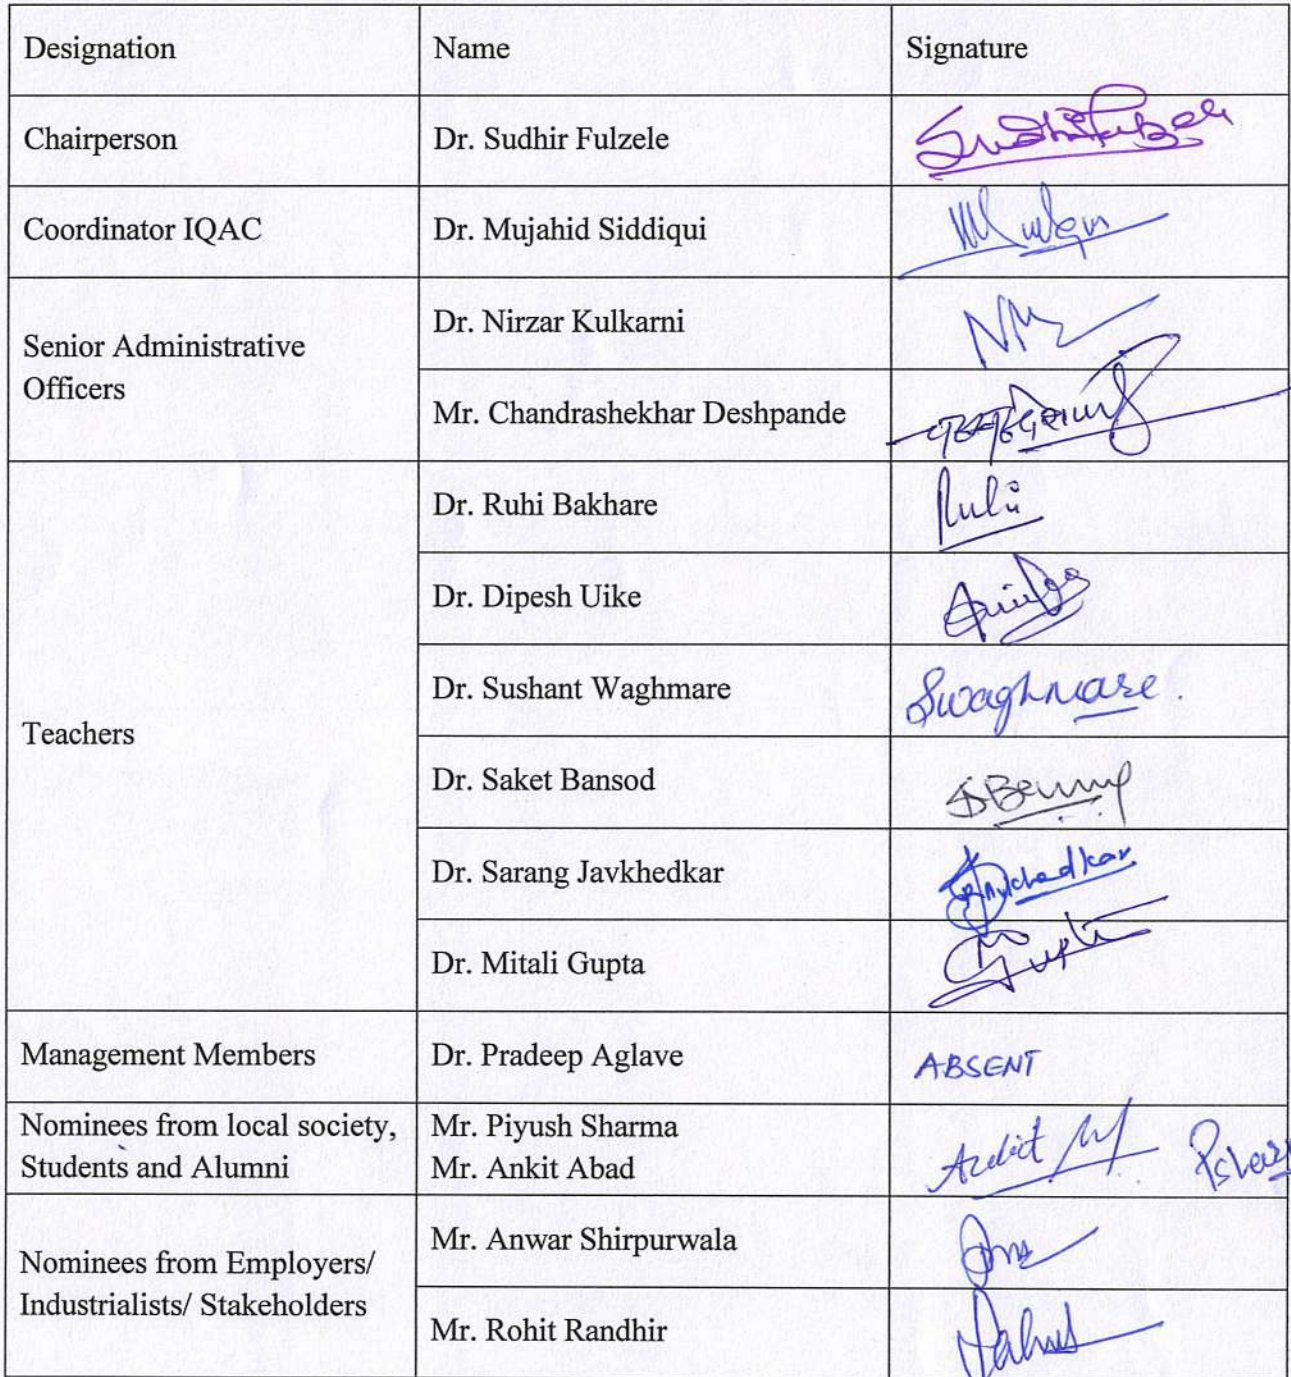 Designation Name Signature
Chairperson Dr. Sudhir Fulzele Sudhir Fulzele
Coordinator IQAC Dr. Mujahid Siddiqui
Senior Administrative
Officers
Dr. Nirzar Kulkarni
Mr. Chandrashekhar Deshpande
Teachers
Dr. Ruhi Bakhare Ruhi
Dr. Dipesh Uike
Dr. Sushant Waghmare Swaghmare.
Dr. Saket Bansod
Dr. Sarang Javkhedkar
Dr. Mitali Gupta Gupta
Management Members Dr. Pradeep Aglave ABSENT
Nominees from local society,
Students and Alumni
Mr. Piyush Sharma
Mr. Ankit Abad
Nominees from Employers/
Industrialists/ Stakeholders
Mr. Anwar Shirpurwala
Mr. Rohit Randhir